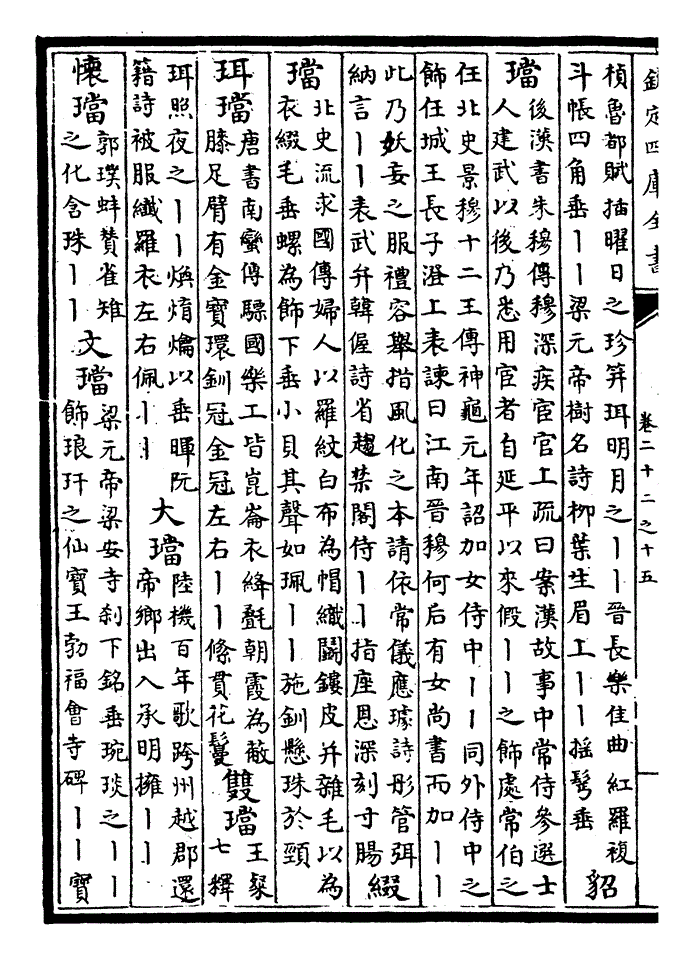 欽定四庫全書
卷二十二之十五
楨魯都賦插曜日之珍笄珥明月之丨丨晉長樂佳曲紅羅複
斗帳四角垂丨丨梁元帝樹名詩柳葉生眉上丨丨搖鬂垂
貂
璫
後漢書朱穆傳穆深疾宦官上疏曰案漢故事中常侍參選士
人建武以後乃悉用宦者自延平以來假丨丨之飾處常伯之
任北史景穆十二王傳神龜元年詔加女侍中丨丨同外侍中之
飾任城王長子澄上表諫曰江南晉穆何后有女尚書而加丨丨
此乃妖妄之服禮容舉措風化之本請依常儀應璩詩彤管弭
納言丨丨表武弁韓偓詩省趨禁閣侍丨丨指座恩深刻寸腸
綴
璫
北史流求國傳婦人以羅紋白布為帽織鬭鏤皮并雜毛以為
衣綴毛垂螺為飾下垂小貝其聲如珮丨丨施釧懸珠於頸
珥璫
唐書南蠻傳驃國樂工皆崑崙衣絳氎朝霞為蔽
膝足臂有金寶環釧冠金冠左右丨丨條貫花鬘
雙璫
王粲
七釋
珥照夜之丨丨煥焴爚以垂暉阮
籍詩被服纖羅衣左右佩丨丨
大璫
陸機百年歌跨州越郡還
帝鄉出入承明擁丨丨
懷璫
郭璞蚌贊雀雉
之化含珠丨丨
文璫
梁元帝梁安寺刹下銘垂琬琰之丨丨
飾琅玕之仙寶王勃福會寺碑丨丨寶